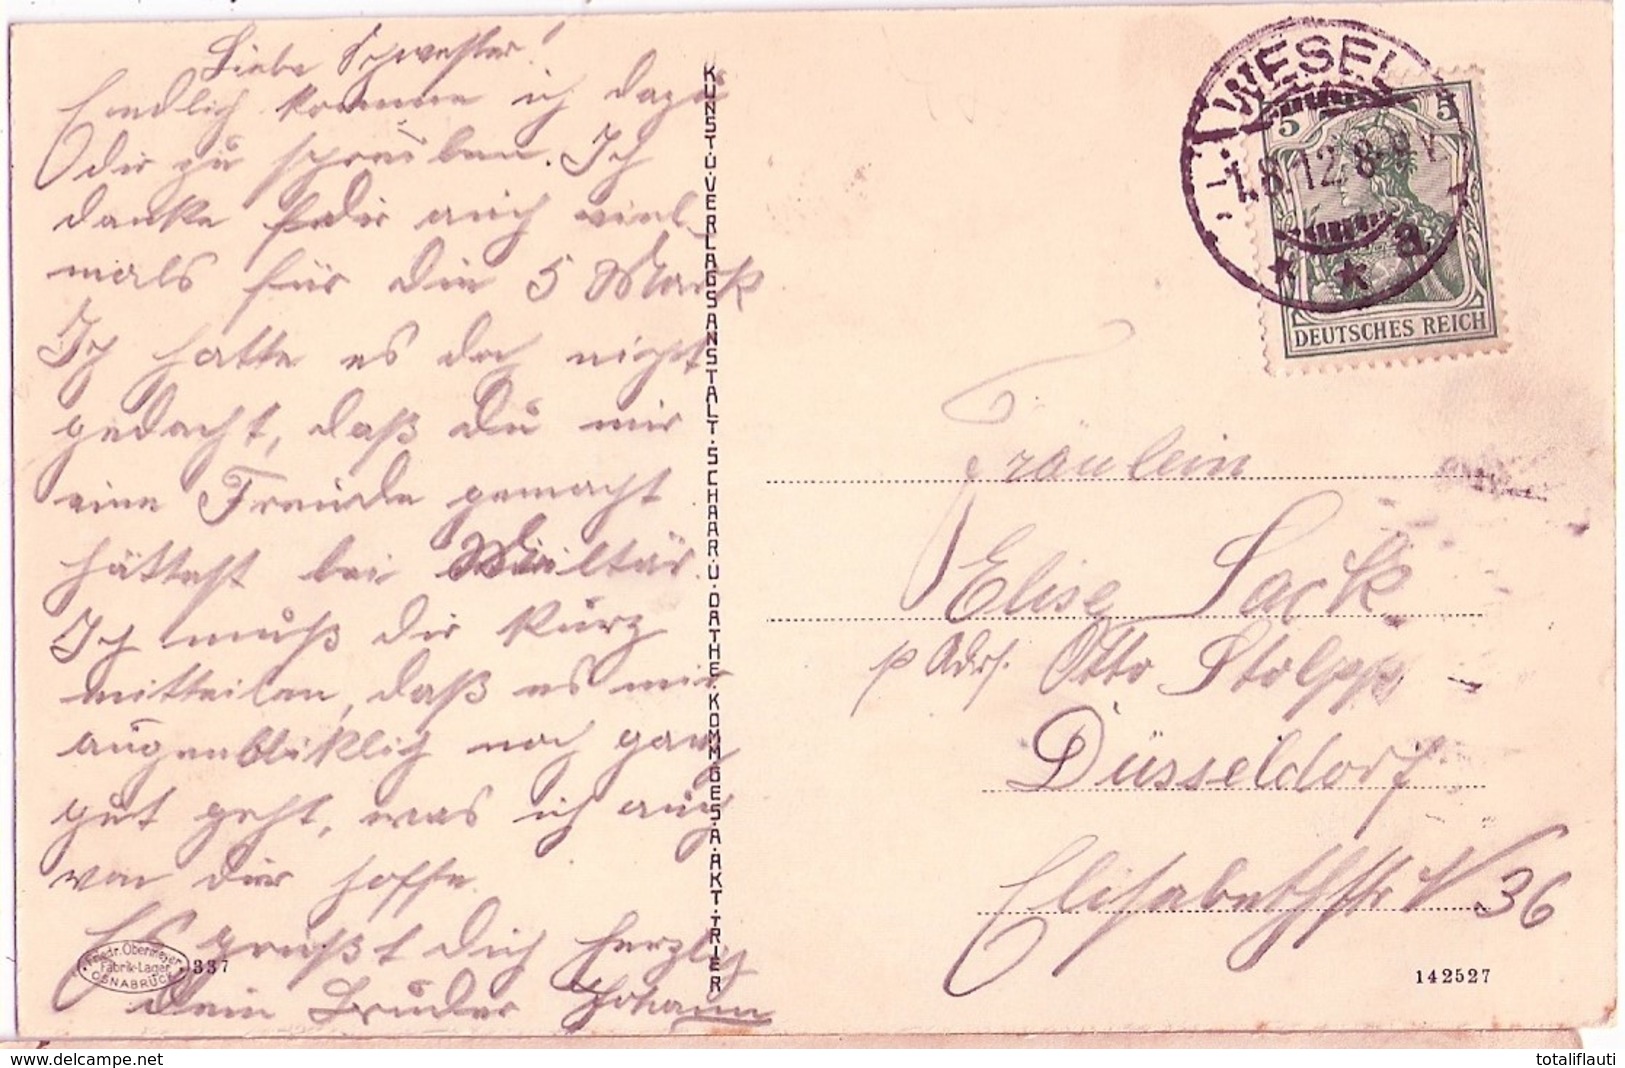 Liebe Schwester!
Endlich komme ich dazu
dir zu schreiben. Ich
danke dir auch viel-
mals für die 5 Mark
Ich hatte es doch nicht
gedacht, daß Du mir
eine Freude gemacht
hättest bei Militär.
Ich muß dir kurz
mitteilen, daß es mir
augenblicklich noch ganz
gut geht, was ich auch
von dir hoffe.
Es grüßt dich herzlich
dein Bruder Johann
Friedr. Obermeyer
Fabrik-Lager
OSNABRÜCK
337
KUNST-U-VERLAGSANSTALT-SCHAAR-U-DATHE-KOMM-GES-A-AKT-TRIER
WESEL
1.8.12.8-9V
* * a
5 5
DEUTSCHES REICH
Fräulein
Elise Sack
p Adrs. Otto Stolpp
Düsseldorf
Elisabethstr N 36
142527
totaliflauti